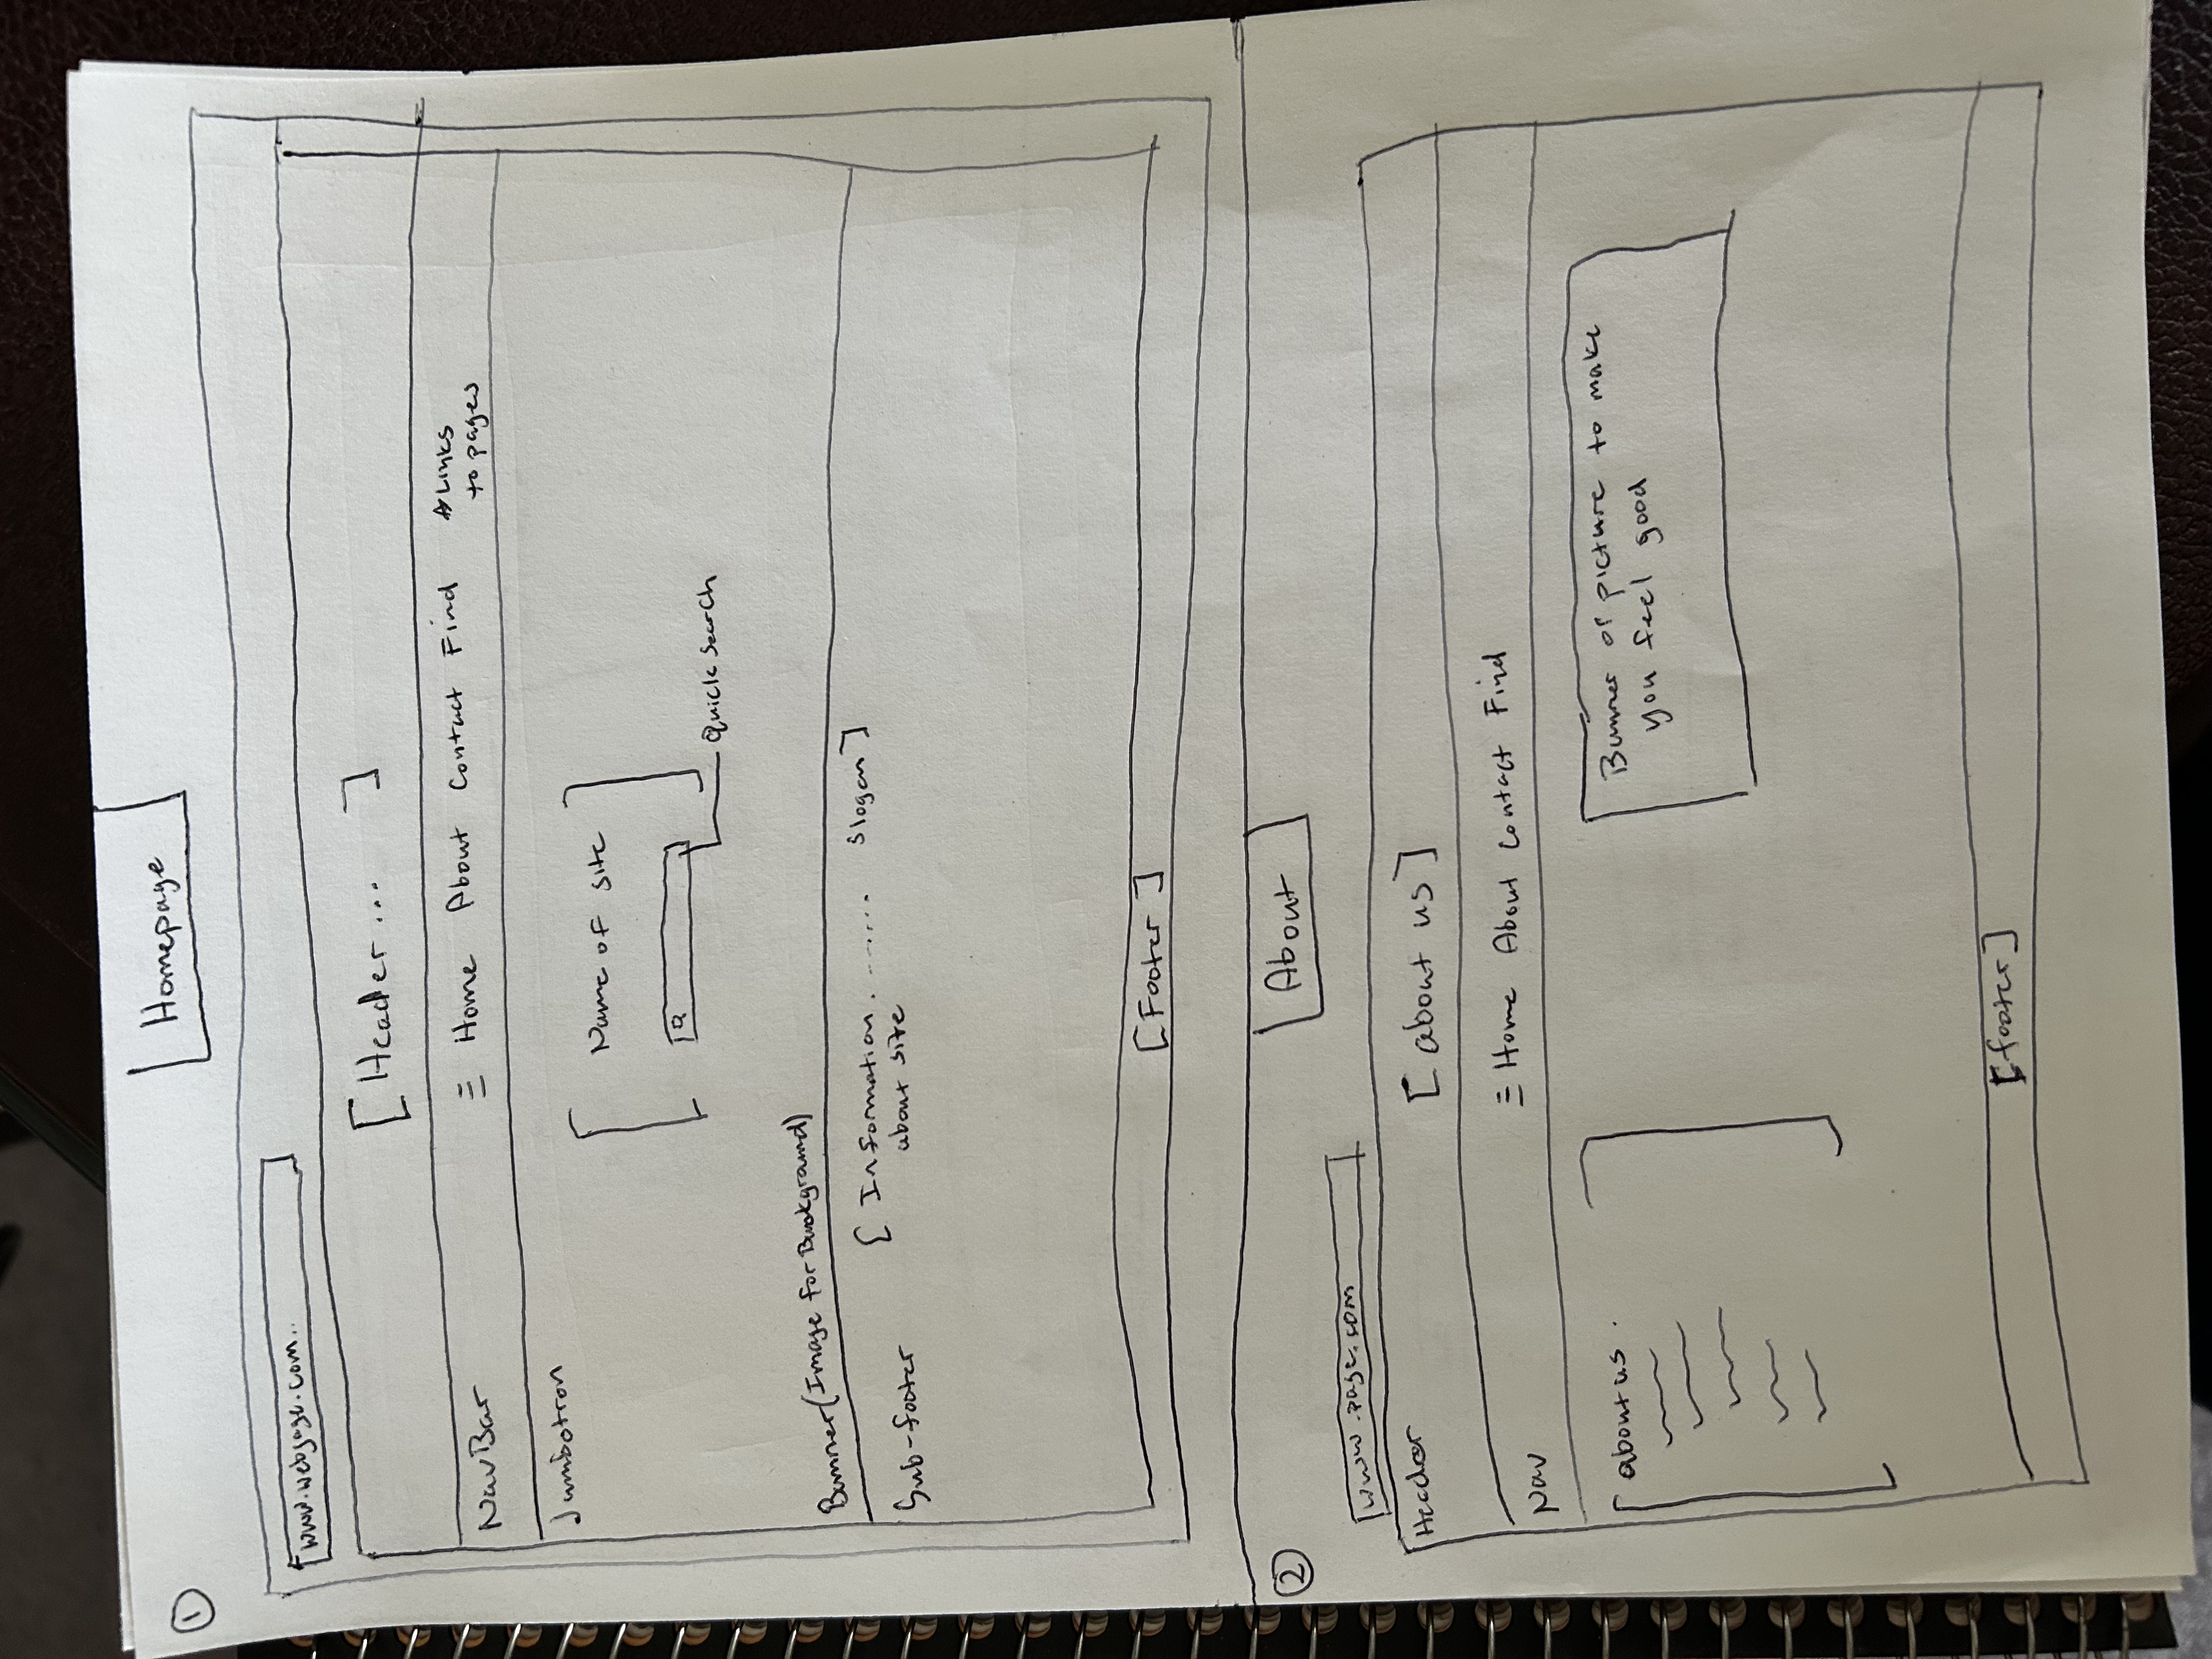 1
Homepage
www.webpage.com..
[ Header ... ]
NavBar
☰ Home About Contact Find
*Links
to pages
Jumbotron
[ Name of site ]
Quick Search
Banner (Image for Background)
[ Information ....... Slogan ]
about site
Sub-footer
[Footer]
2
About
www.page.com
Header
[ about us ]
Nav
☰ Home About Contact Find
about us .
Banner or picture to make
you feel good
[footer]